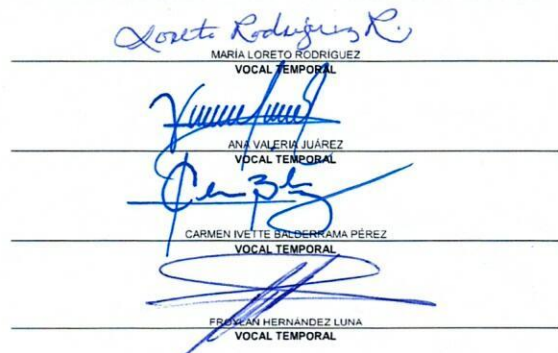 Loreto Rodríguez R.
MARÍA LORETO RODRÍGUEZ
VOCAL TEMPORAL
ANA VALERIA JUÁREZ
VOCAL TEMPORAL
CARMEN IVETTE BALDERRAMA PÉREZ
VOCAL TEMPORAL
FROYLAN HERNÁNDEZ LUNA
VOCAL TEMPORAL